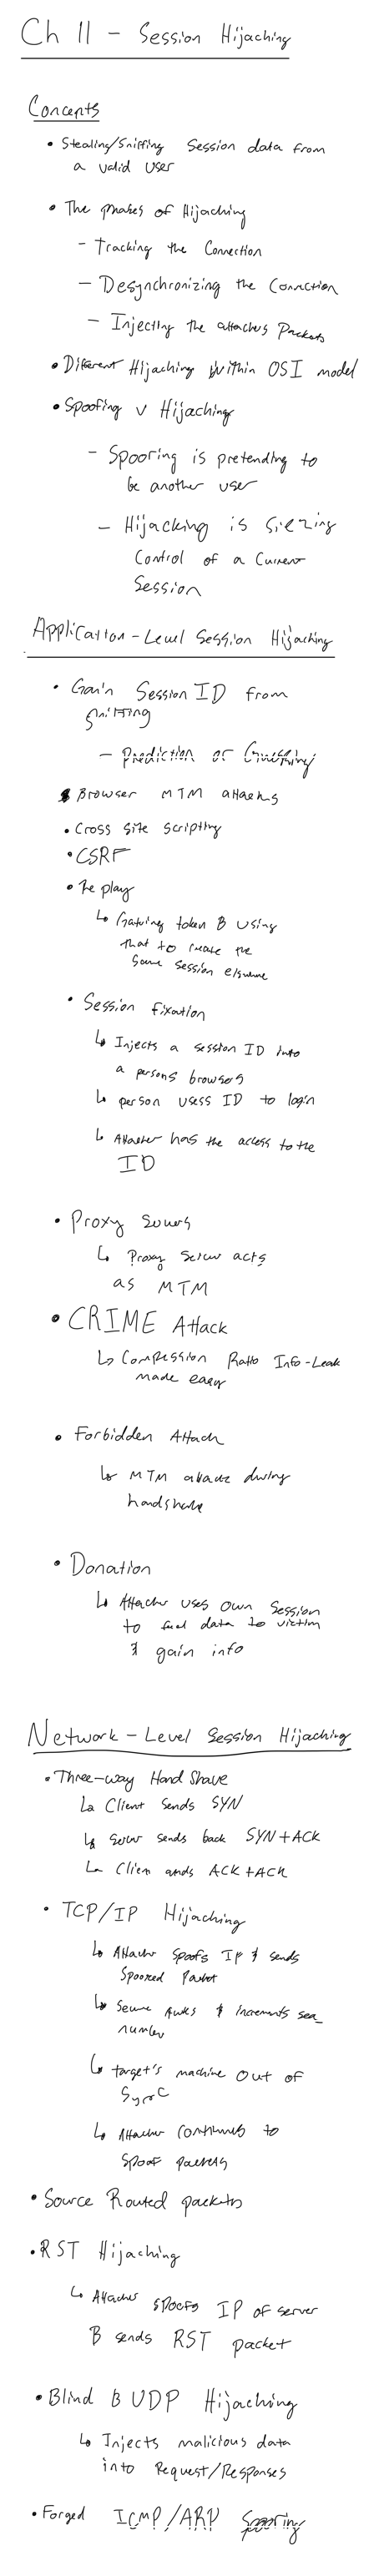 Ch 11 - Session Hijacking
Concepts
• Stealing/Sniffing Session data from
a valid user
• The phases of Hijacking
- Tracking the Connection
- Desynchronizing the Connection
- Injecting the attackers Packets
• Different Hijacking Within OSI model
• Spoofing v Hijacking
- Spoofing is pretending to
be another user
- Hijacking is Siezing
Control of a Current
Session
Application-Level Session Hijacking
• Gain Session ID from
Sniffing
- prediction or Guessing
• Browser MTM attacks
• Cross Site Scripting
• CSRF
• Replay
↳ Gathering token & Using
that to create the
same session elsewhere
• Session fixation
↳ Injects a session ID into
a persons browsers
↳ person usess ID to login
↳ Attacker has the access to the
ID
• Proxy Servers
↳ Proxy Server acts
as MTM
• CRIME Attack
↳ Compression Ratio Info-Leak
made easy
• Forbidden Attack
↳ MTM attack during
handshake
• Donation
↳ Attacker uses own Session
to feed data to victim
& gain info
Network-Level Session Hijacking
• Three-way Hand Shake
↳ Client Sends SYN
↳ Server sends back SYN+ACK
↳ Client ACK+ACK
• TCP/IP Hijacking
↳ Attacker Spoofs IP & sends
Spoofed Packet
↳ & Increments seq
number
↳ target's machine Out of
Sync
↳ Attacker Continues to
Spoof packets
• Source Routed packets
• RST Hijacking
↳ Attacker spoofs IP of server
& sends RST packet
• Blind & UDP Hijacking
↳ Injects malicious data
into Request/Responses
• Forged ICMP/ARP Spoofing